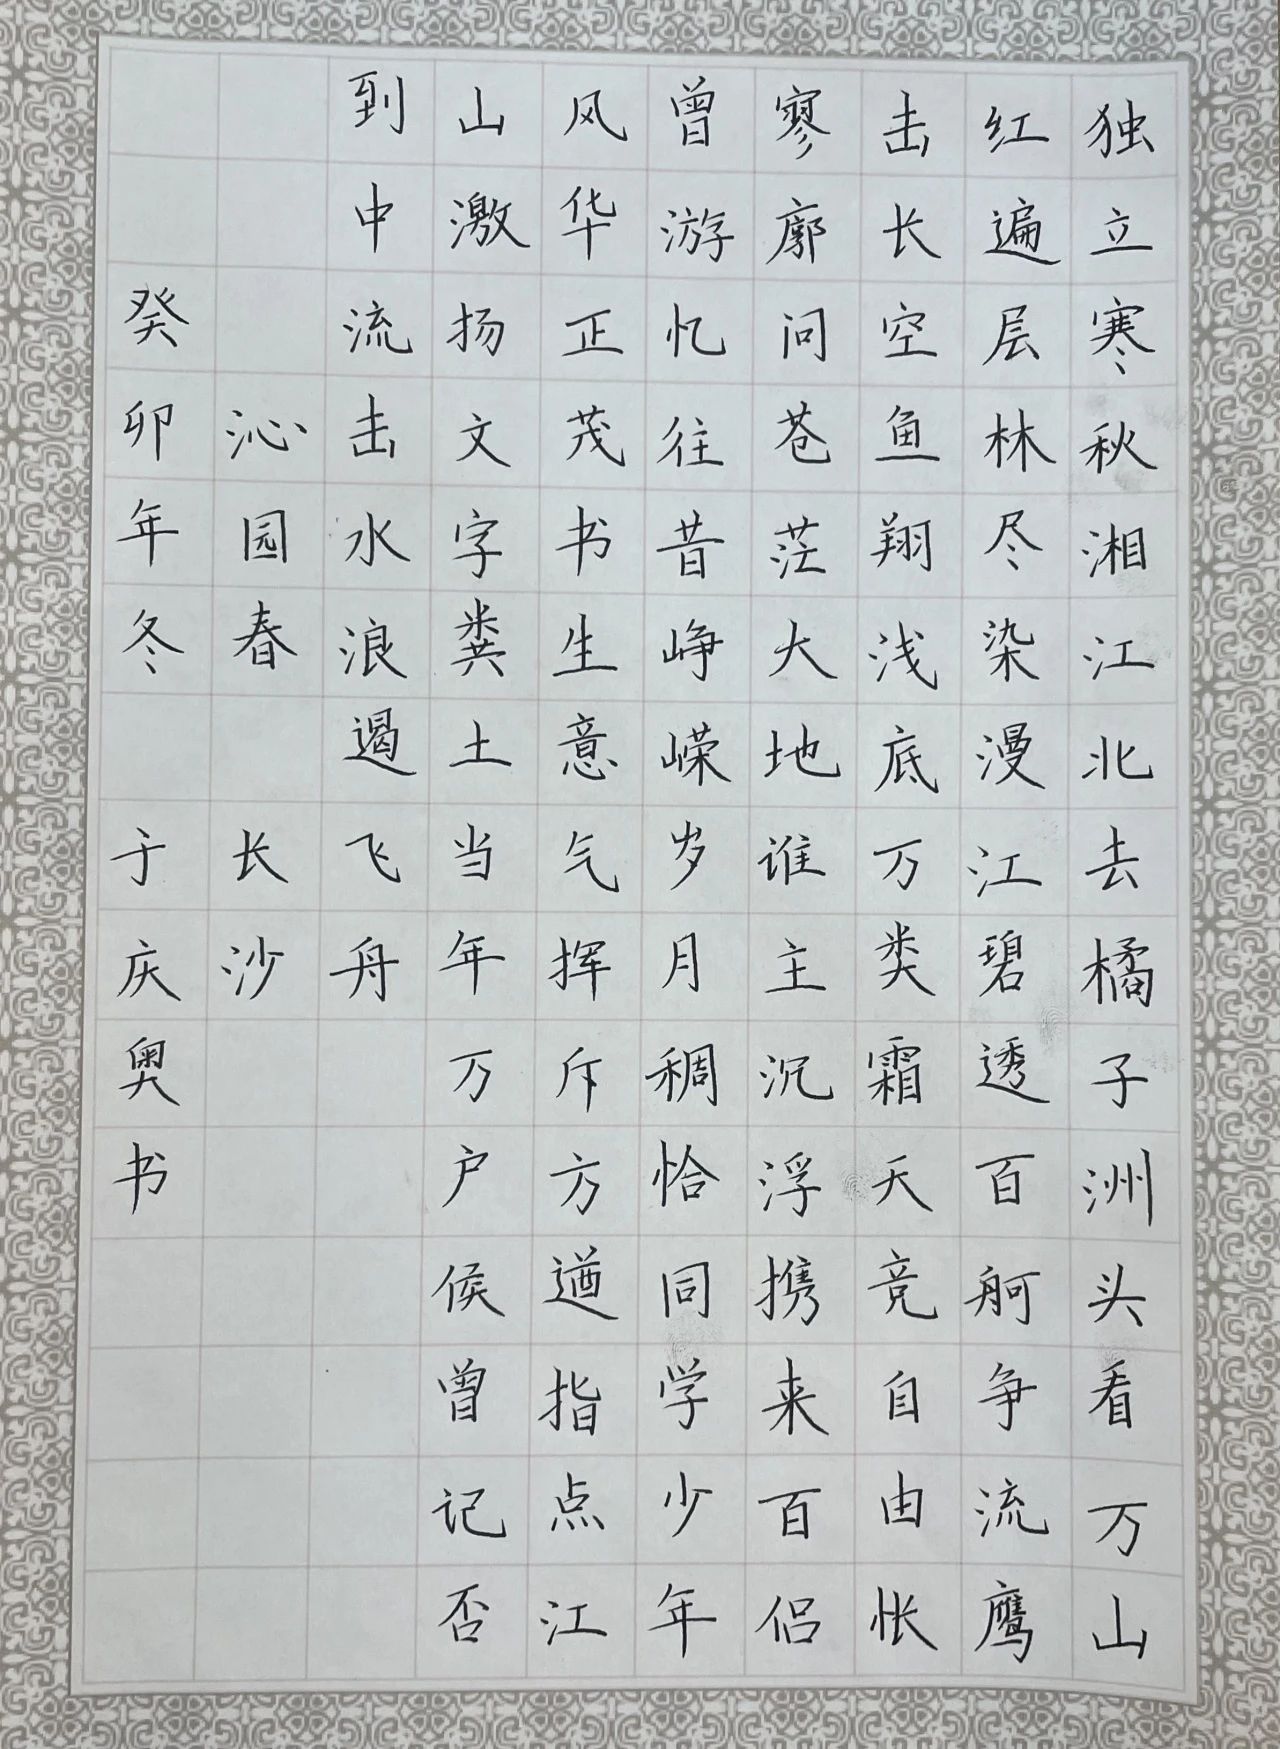 独立寒秋湘江北去橘子洲头看万山
红遍层林尽染漫江碧透百舸争流鹰
击长空鱼翔浅底万类霜天竞自由怅
寥廓问苍茫大地谁主沉浮携来百侣
曾游忆往昔峥嵘岁月稠恰同学少年
风华正茂书生意气挥斥方遒指点江
山激扬文字粪土当年万户侯曾记否
到中流击水浪遏飞舟
沁园春 长沙
癸卯年冬 于庆奥书